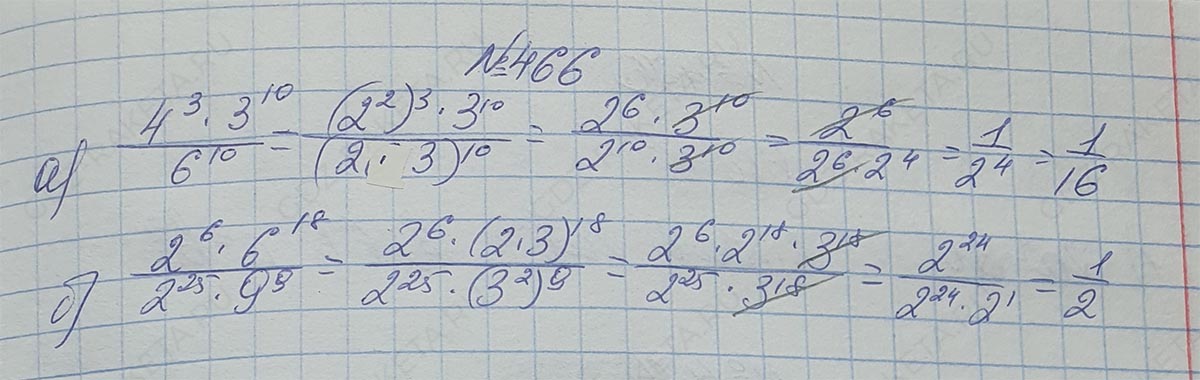 №466
а) 4³·3¹⁰/6¹⁰ = (2²)³·3¹⁰/(2·3)¹⁰ = 2⁶·3¹⁰/2¹⁰·3¹⁰ = 2⁶/2⁶·2⁴ = 1/2⁴ = 1/16
б) 2⁶·6¹⁸/2²⁵·9⁹ = 2⁶·(2·3)¹⁸/2²⁵·(3²)⁹ = 2⁶·2¹⁸·3¹⁸/2²⁵·3¹⁸ = 2²⁴/2²⁴·2¹ = 1/2